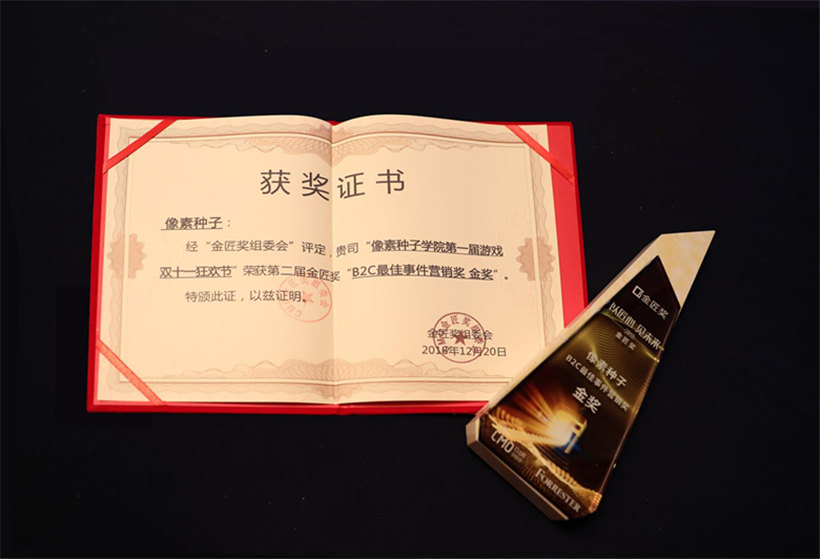 获奖证书
像素种子：
经“金匠奖组委会”评定，贵司“像素种子学院第一届游戏
双十一狂欢节”荣获第二届金匠奖“B2C最佳事件营销奖 金奖”。
特颁此证，以兹证明。
金匠奖组委会
2018年12月20日
金匠奖
以匠心 见未来
金匠奖
像素种子
B2C最佳事件营销奖
金奖
CMO
FORRESTER